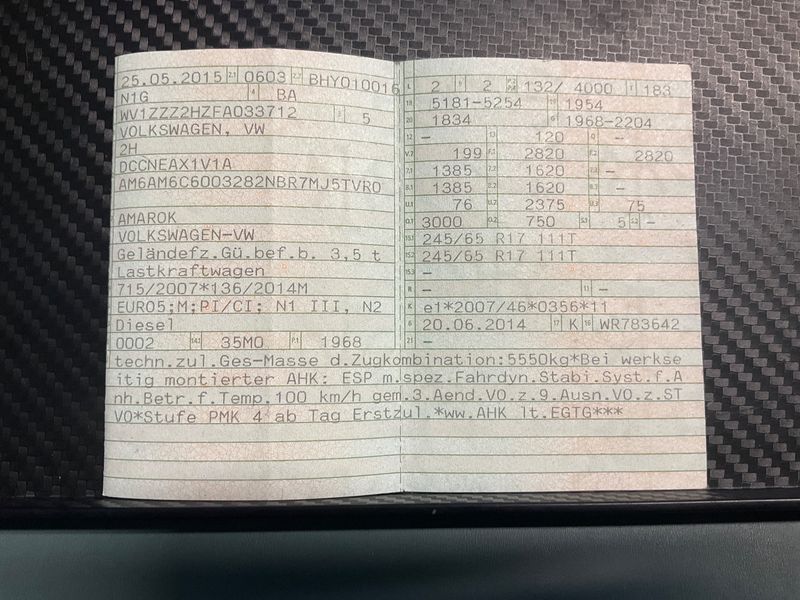 25.05.2015 2.1 0603 2.2 BHY010016
N1G 4 BA
WV1ZZZ2HZFA033712 3 5
VOLKSWAGEN, VW
2H
DCCNEAX1V1A
AM6AM6C6003282NBR7MJ5TVR0
AMAROK
VOLKSWAGEN-VW
Geländefz.Gü.bef.b. 3,5 t
Lastkraftwagen
715/2007*136/2014M
EURO5;M;PI/CI; N1 III, N2
Diesel
0002 14.1 35M0 P.1 1968
L 2 9 2 P.2 P.4 132/ 4000 T 183
18 5181-5254 19 1954
20 1834 G 1968-2204
12 – 13 120 Q –
V.7 199 F.1 2820 F.2 2820
7.1 1385 7.2 1620 7.3 –
8.1 1385 8.2 1620 8.3 –
U.1 76 U.2 2375 U.3 75
O.1 3000 O.2 750 S.1 5 S.2 –
15.1 245/65 R17 111T
15.2 245/65 R17 111T
15.3 –
R – 11 –
K e1*2007/46*0356*11
6 20.06.2014 17 K 16 WR783642
21 –
techn.zul.Ges-Masse d.Zugkombination:5550kg*Bei werkse
itig montierter AHK: ESP m.spez.Fahrdyn.Stabi.Syst.f.A
nh.Betr.f.Temp.100 km/h gem.3.Aend.VO.z.9.Ausn.VO.z.ST
VO*Stufe PMK 4 ab Tag Erstzul.*ww.AHK lt.EGTG***